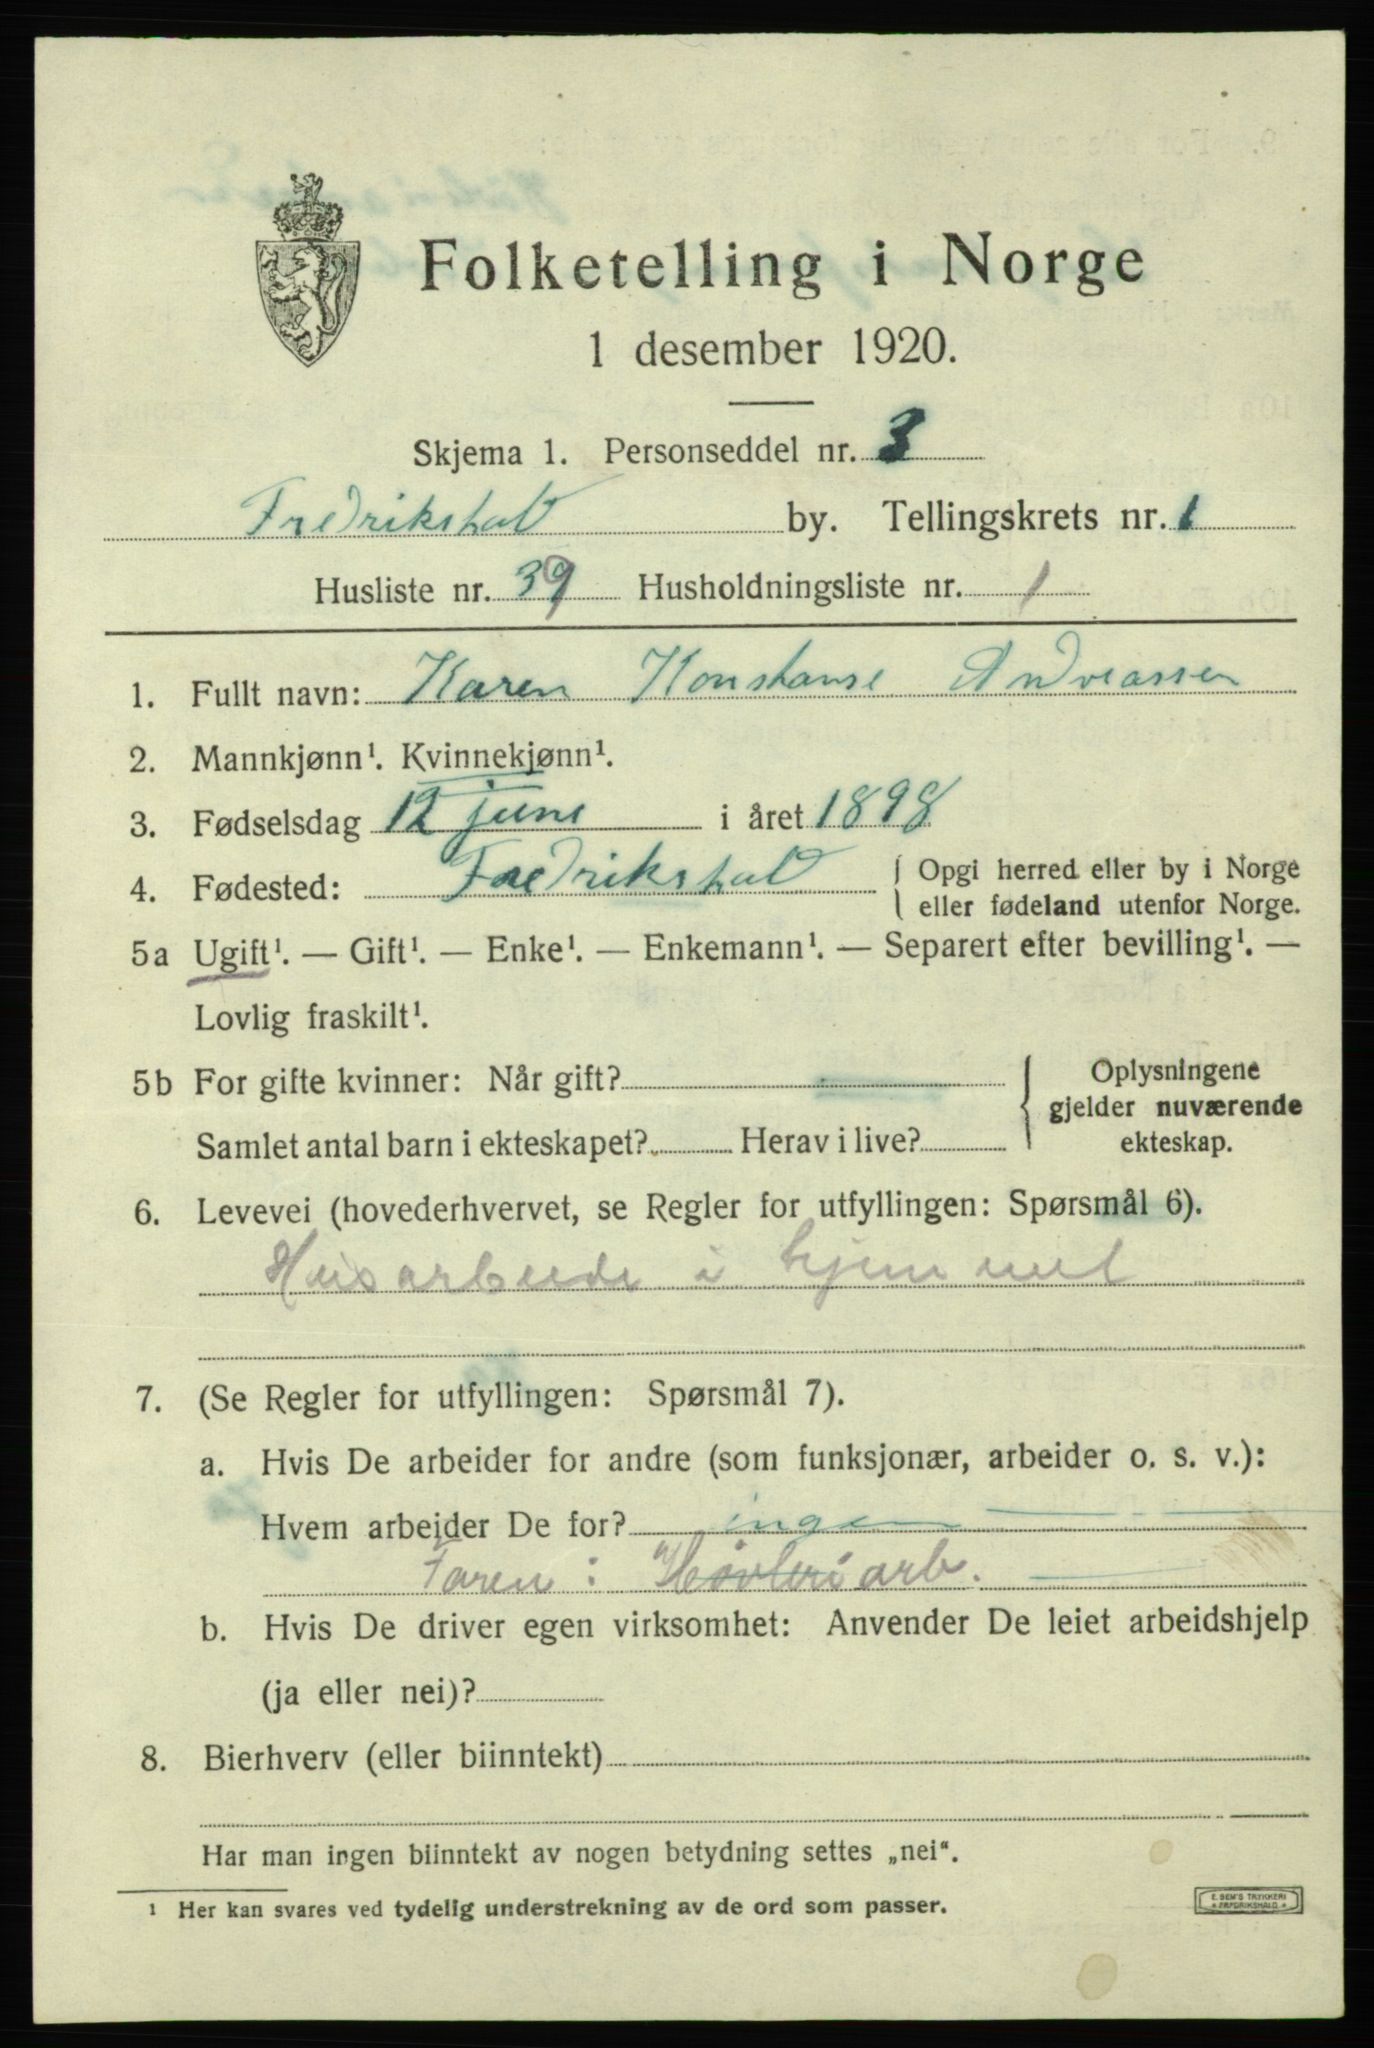 Folketelling i Norge
1 desember 1920.
Skjema 1. Personseddel nr. 3
Fredrikshald by. Tellingskrets nr. 1
Husliste nr. 39 Husholdningsliste nr. 1
1. Fullt navn: Karen Konstanse Andreassen
2. Mannkjønn¹. Kvinnekjønn¹.
3. Fødselsdag 12 juni i året 1898
4. Fødested: Fredrikshald { Opgi herred eller by i Norge
eller fødeland utenfor Norge.
5a Ugift¹. — Gift¹. — Enke¹. — Enkemann¹. — Separert efter bevilling¹. —
Lovlig fraskilt¹.
5b For gifte kvinner: Når gift?
Samlet antal barn i ekteskapet? Herav i live?
{ Oplysningene
gjelder nuværende
ekteskap.
6. Levevei (hovederhvervet, se Regler for utfyllingen: Spørsmål 6).
Husarbeide i hjemmet
7. (Se Regler for utfyllingen: Spørsmål 7).
a. Hvis De arbeider for andre (som funksjonær, arbeider o. s. v.):
Hvem arbeider De for? ingen
Faren: Høvleriarb.
b. Hvis De driver egen virksomhet: Anvender De leiet arbeidshjelp
(ja eller nei)?
8. Bierhverv (eller biinntekt)
Har man ingen biinntekt av nogen betydning settes „nei“.
¹ Her kan svares ved tydelig understrekning av de ord som passer.
E. SEM'S TRYKKERI
* FREDRIKSHALD *